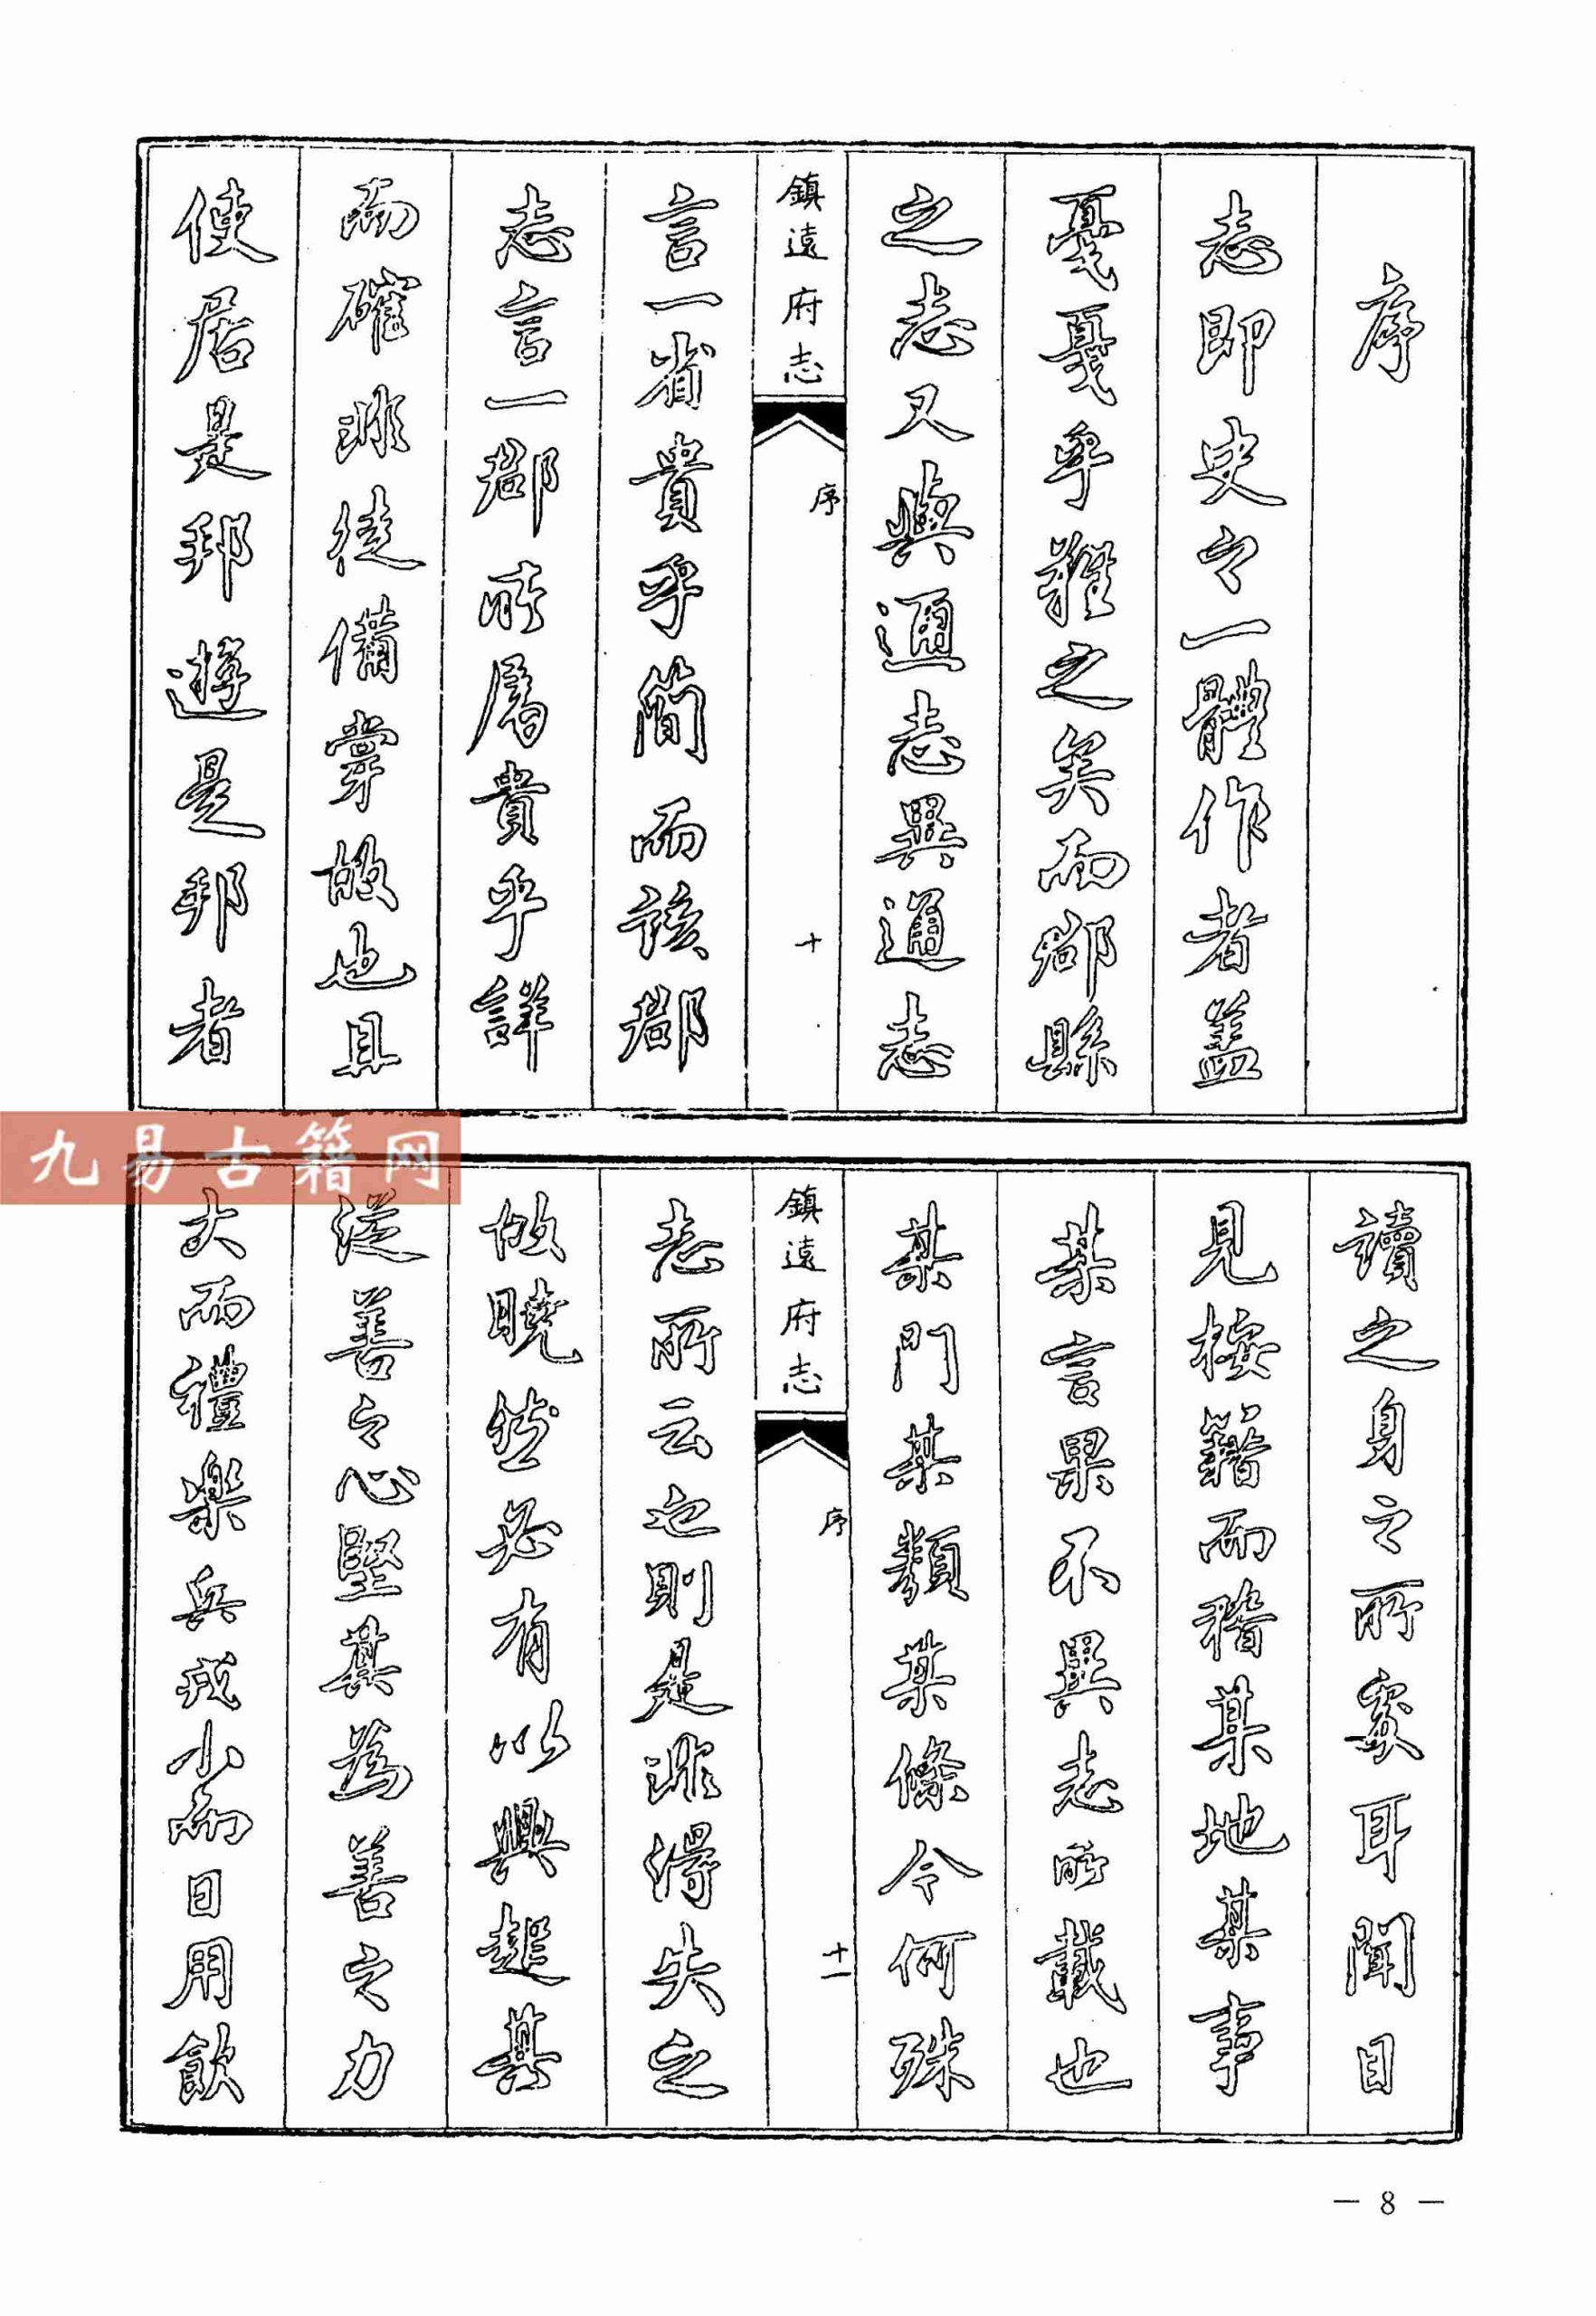 序
志即史之一體作者蓋
戞戞乎難之矣而郡縣
之志又與通志異通志
鎮遠府志
序
十
言一省貴乎簡而該郡
志言一郡所屬貴乎詳
而確非徒備掌故也且
使居是邦遊是邦者
九易古籍网
讀之身之所處耳聞目
見按籍而稽某地某事
某言果不異志所載也
某門某類某條今何殊
鎮遠府志
序
十一
志所云也則是非得失之
故曉然必有以興起其
從善之心堅其為善之力
大而禮樂兵戎小而日用飲
— 8 —